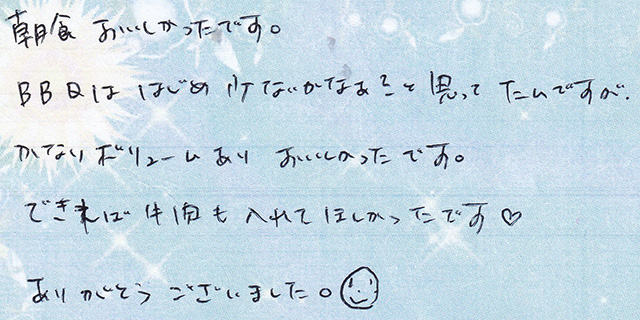 朝食 おいしかったです。
BBQは はじめ 少ないかなぁ〜と思って たんですが、
かなりボリュームあり おいしかったです。
できれば牛肉も入れてほしかったです♡
ありがとうございました。☺